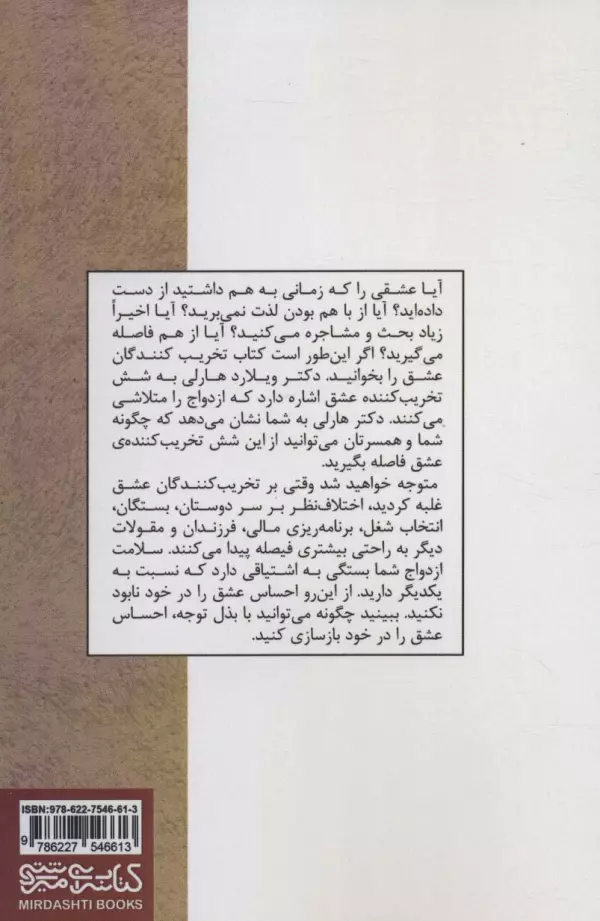 آیا عشقی را که زمانی به هم داشتید از دست
داده‌اید؟ آیا از با هم بودن لذت نمی‌برید؟ آیا اخیراً
زیاد بحث و مشاجره می‌کنید؟ آیا از هم فاصله
می‌گیرید؟ اگر این‌طور است کتاب تخریب کنندگان
عشق را بخوانید. دکتر ویلارد هارلی به شش
تخریب‌کننده عشق اشاره دارد که ازدواج را متلاشی
می‌کنند. دکتر هارلی به شما نشان می‌دهد که چگونه
شما و همسرتان می‌توانید از این شش تخریب‌کننده‌ی
عشق فاصله بگیرید.
متوجه خواهید شد وقتی بر تخریب‌کنندگان عشق
غلبه کردید، اختلاف‌نظر بر سر دوستان، بستگان،
انتخاب شغل، برنامه‌ریزی مالی، فرزندان و مقولات
دیگر به راحتی بیشتری فیصله پیدا می‌کنند. سلامت
ازدواج شما بستگی به اشتیاقی دارد که نسبت به
یکدیگر دارید. از این‌رو احساس عشق را در خود نابود
نکنید. ببینید چگونه می‌توانید با بذل توجه، احساس
عشق را در خود بازسازی کنید.
ISBN:978-622-7546-61-3
9 786227 546613
کتابسرای میردشتی
MIRDASHTI BOOKS